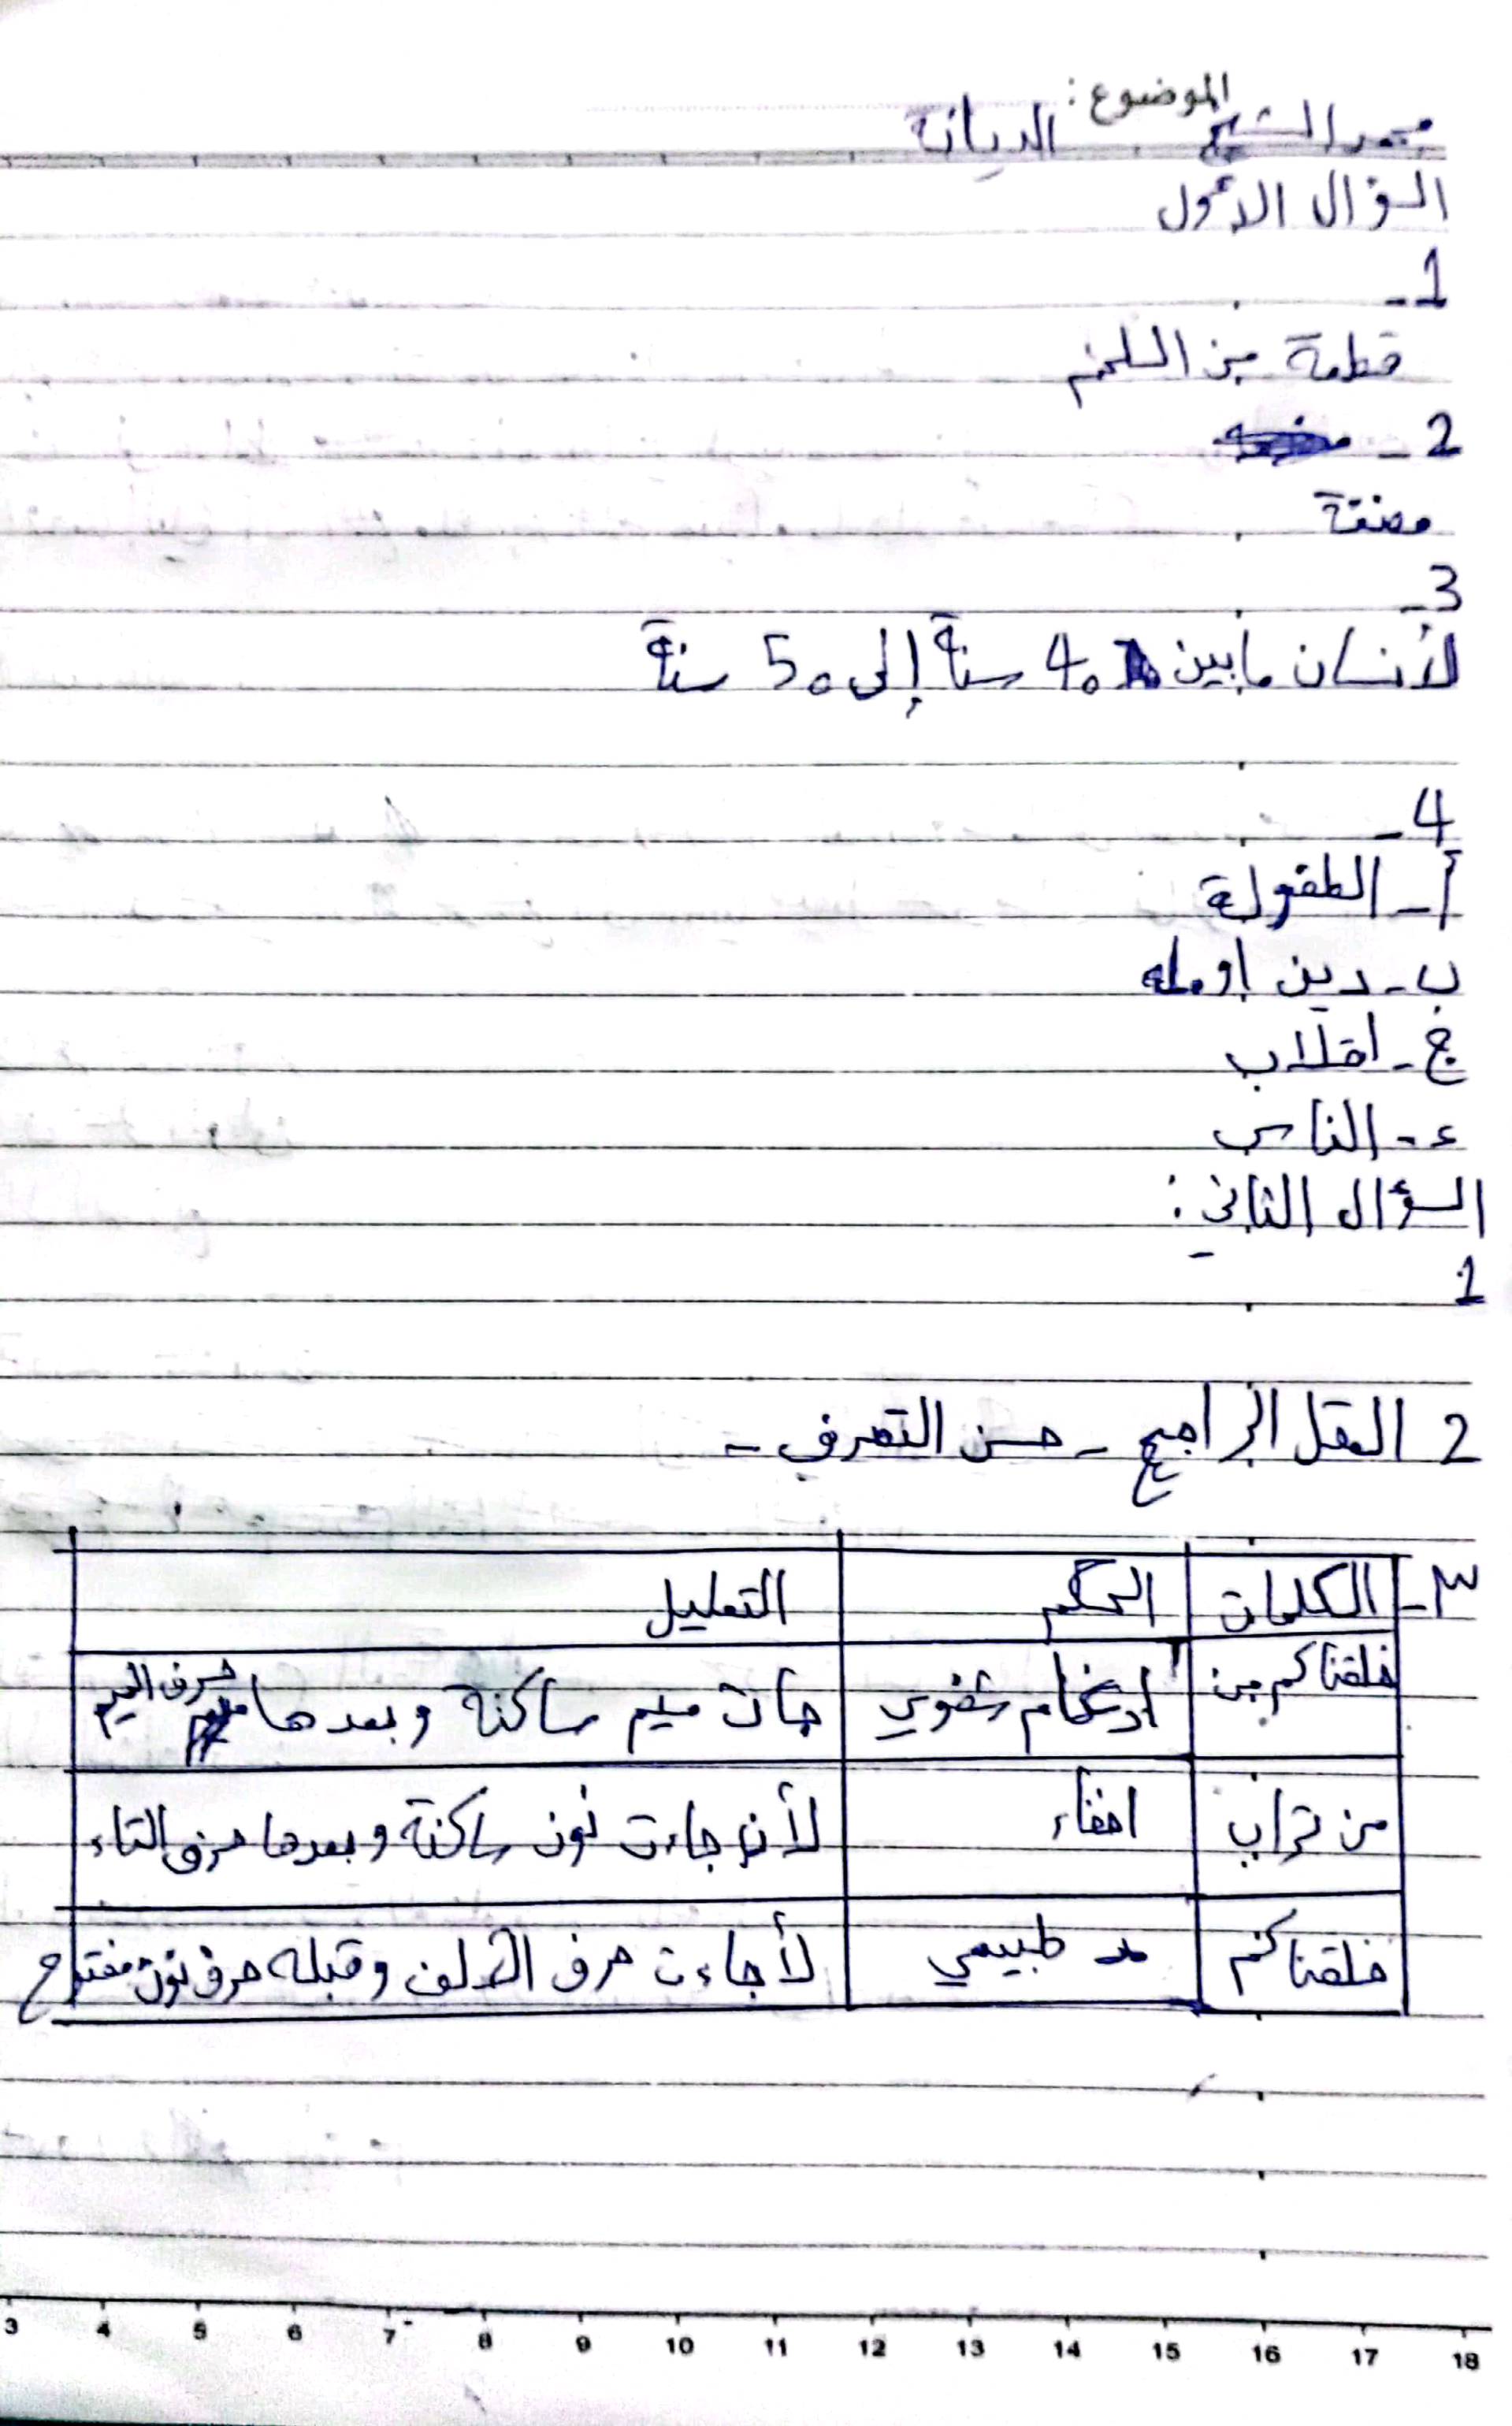 الموضوع:
محمد الشيخ الديانة
السؤال الأول
1-
قطعة من اللحم
2-
مضغة
3-
لأنسان مابين 40 سنة إلى 50 سنة
4-
أ- الطفولة
ب- دين اومله
ج- اقلاب
ء- الناس
السؤال الثاني:
1
2 العقل الراجح - حسن التصرف -
٣- الكلمات الحكم التعليل
خلقناكم من ادغام شفوي جات ميم ساكنة وبعدها حرف الميم
من تراب اخفاء لأن جاءت نون ساكنة وبعدها حرف التاء
خلقناكم مد طبيعي لأ جاءت حرف الألف وقبله حرف نون مفتوح
3 4 5 6 7 8 9 10 11 12 13 14 15 16 17 18